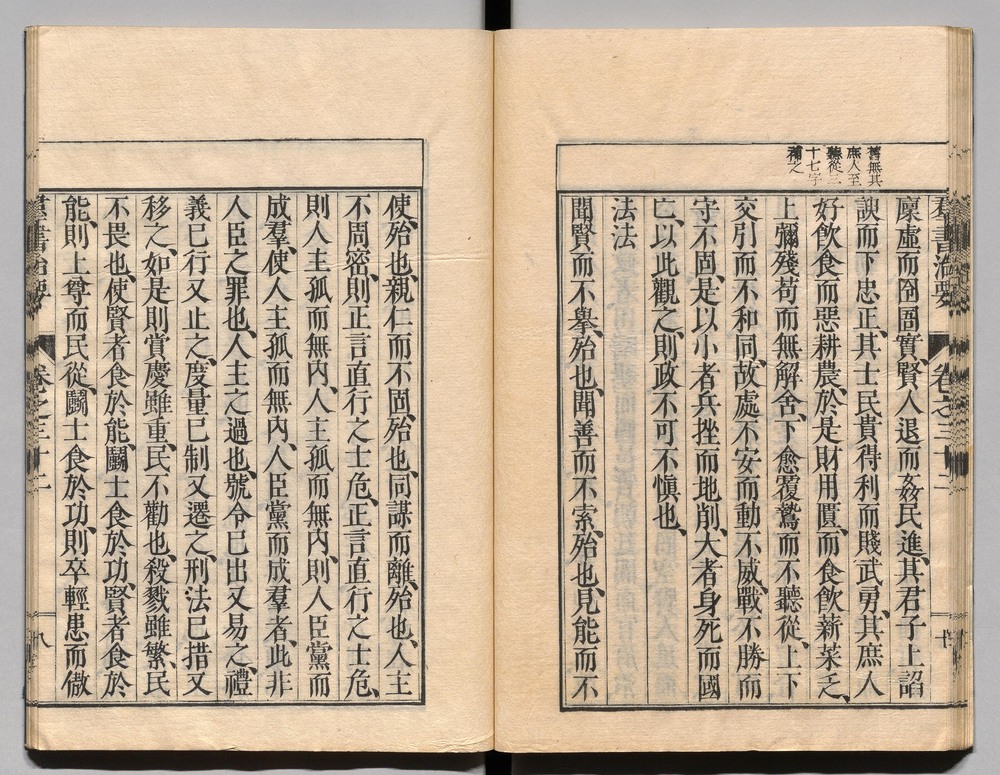 舊無其
庶人至
聽從二
十七字
補之
群書治要
卷之三十二
廩虛而囹圄實、賢人退而姦民進、其君子上諂
諛而下忠正、其士民貴得利而賤武勇、其庶人
好飲食而惡耕農、於是財用匱、而食飲薪菜乏、
上彌殘苟而無解舍、下愈覆鷙而不聽從、上下
交引而不和同、故處不安而動不威、戰不勝而
守不固、是以小者兵挫而地削、大者身死而國
亡、以此觀之、則政不可不愼也、
法法
聞賢而不擧、殆也、聞善而不索、殆也、見能而不
使、殆也、親仁而不固、殆也、同謀而離、殆也、人主
不周密、則正言直行之士危、正言直行之士危、
則人主孤而無內、人主孤而無內、則人臣黨而
成羣、使人主孤而無內、人臣黨而成羣者、此非
人臣之罪也、人主之過也、號令已出又易之、禮
義已行又止之、度量已制又遷之、刑法已措又
移之、如是則賞慶雖重、民不勸也、殺戮雖繁、民
不畏也、使賢者食於能、鬪士食於功、賢者食於
能、則上尊而民從、鬪士食於功、則卒輕患而傲
群書治要
卷之三十二
八